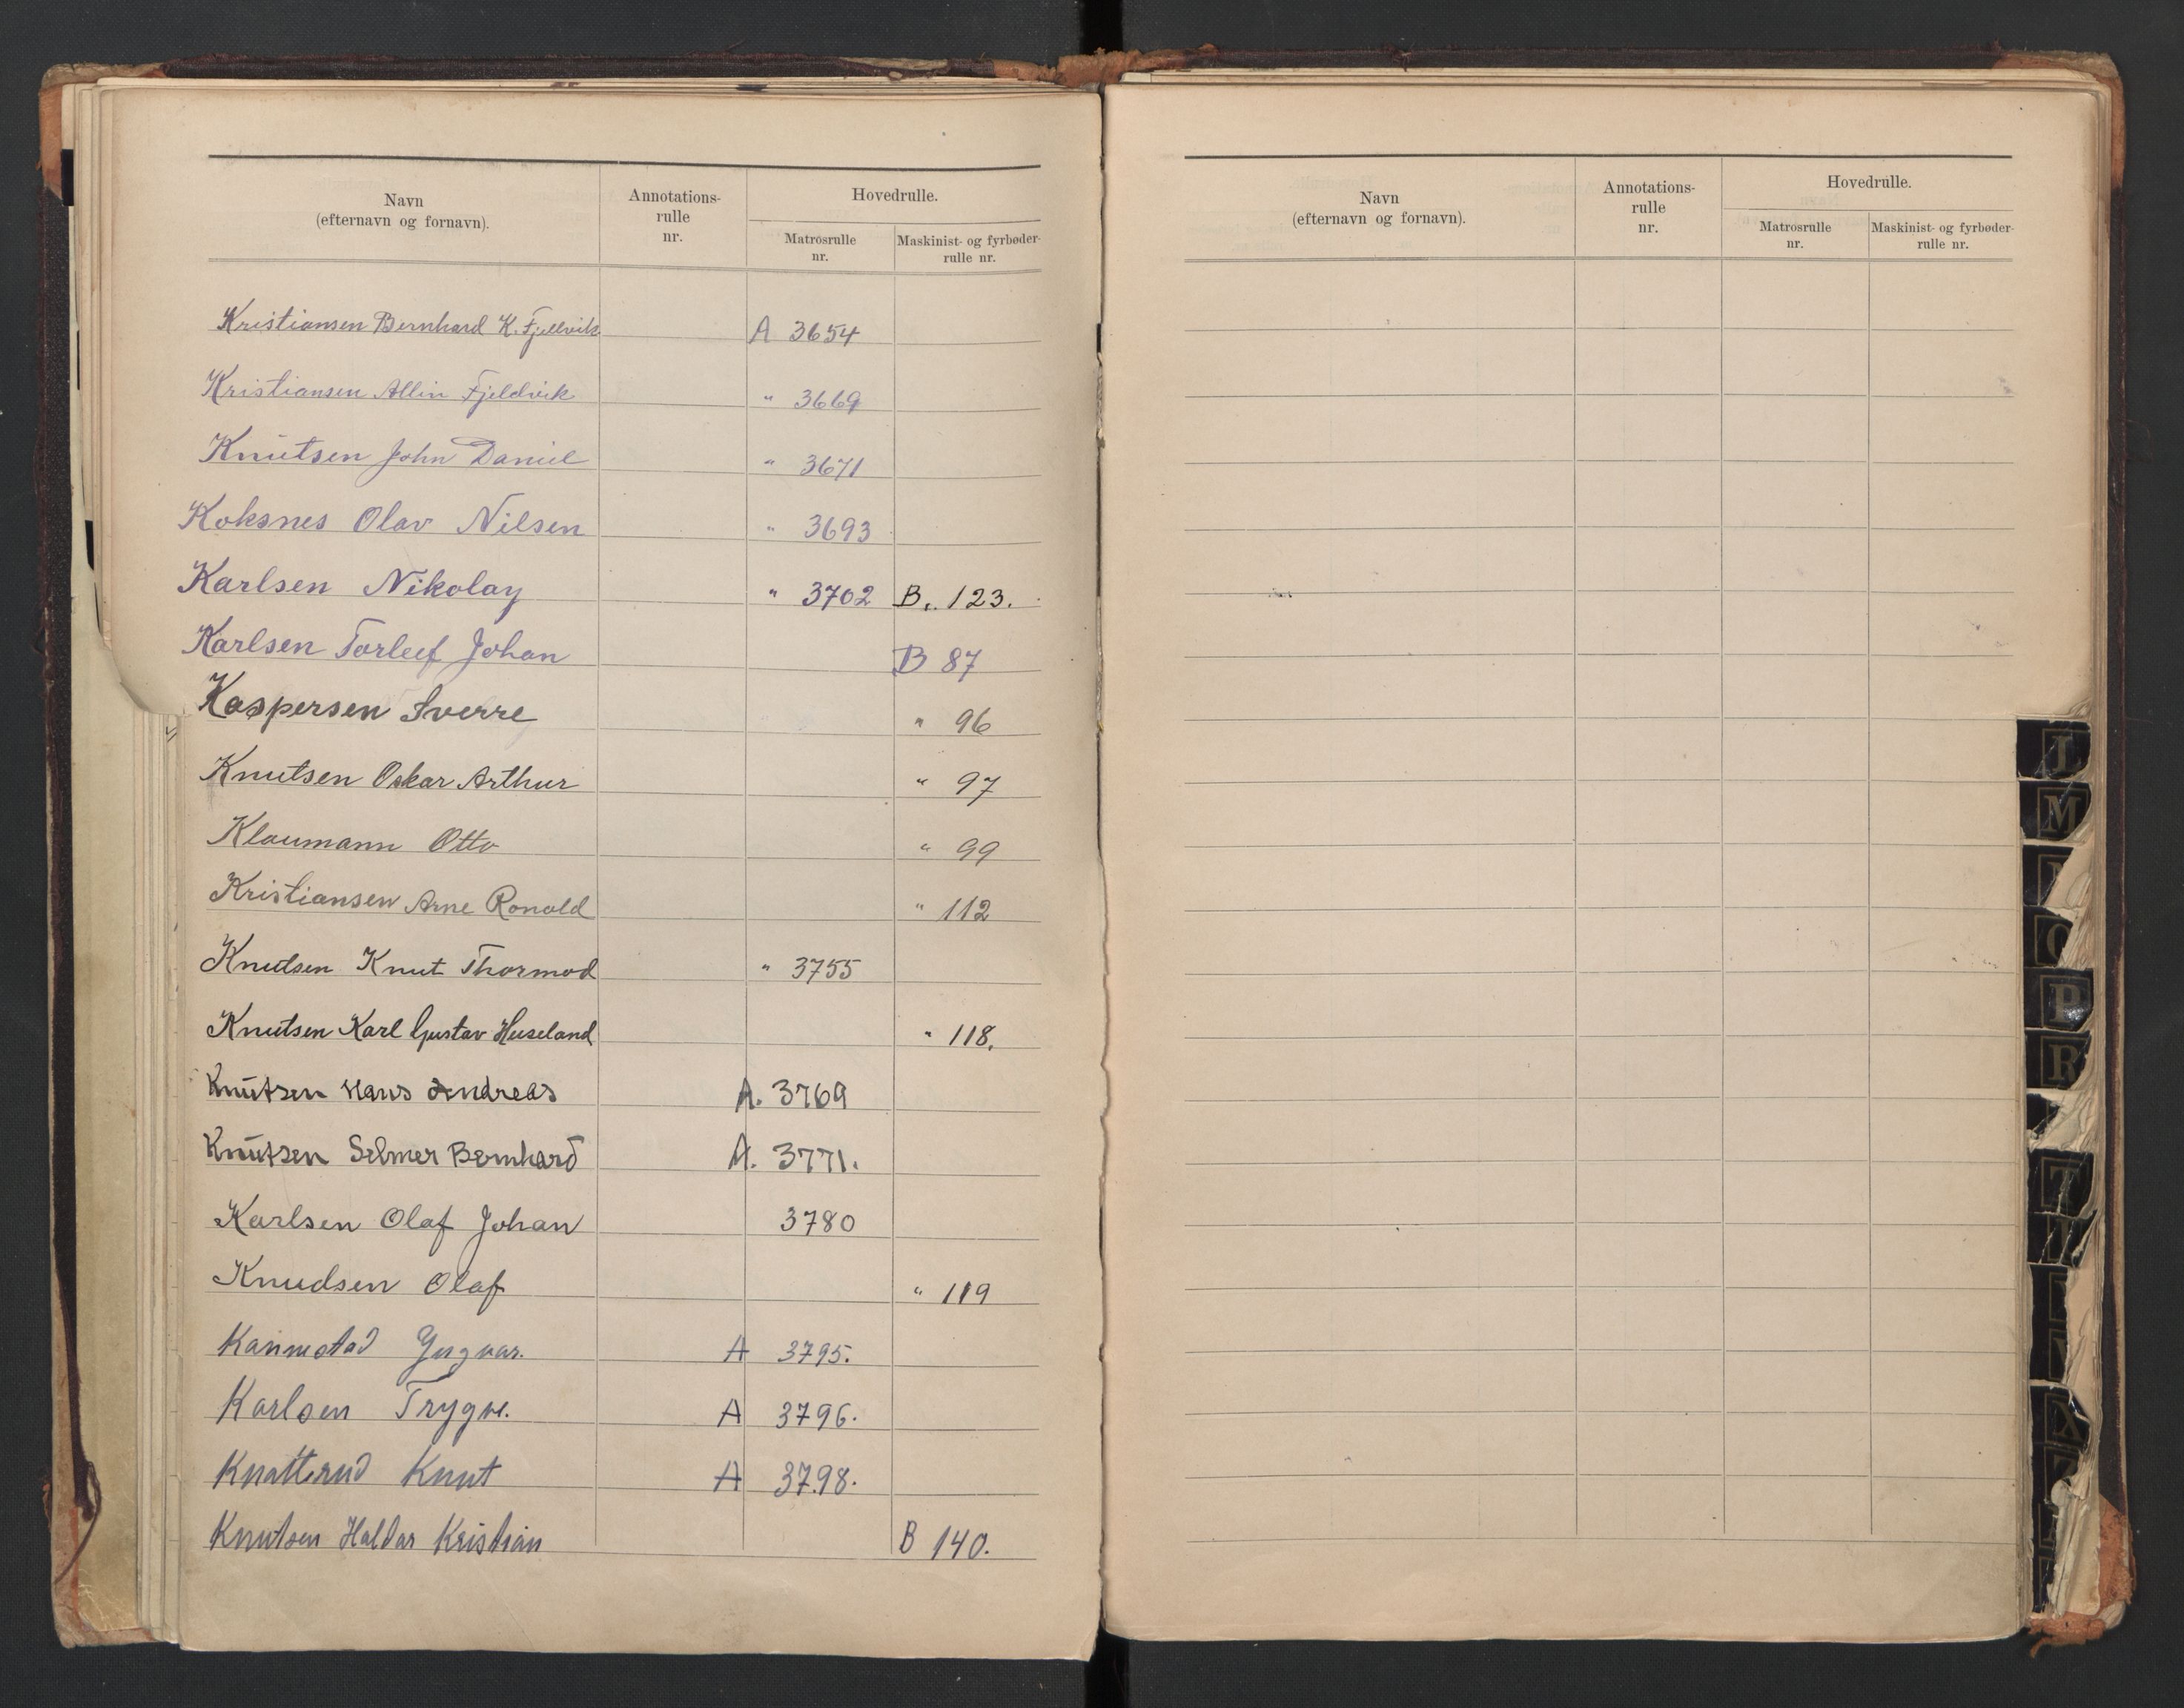 Navn
(efternavn og fornavn).
Annotations-
rulle
nr.
Hovedrulle.
Matrosrulle
nr.
Maskinist- og fyrbøder-
rulle nr.
Kristiansen Bernhard K. Fjellvik A 3654
Kristiansen Allin Fjeldvik " 3669
Knutsen John Daniel " 3671
Koksnes Olav Nilsen " 3693
Karlsen Nikolay " 3702 B. 123.
Karlsen Torleef Johan B 87
Kaspersen Sverre " 96
Knutsen Oskar Arthur " 97
Klaumann Otto " 99
Kristiansen Arne Ronald " 112
Knutsen Knut Thormod " 3755
Knutsen Karl Gustav Huseland " 118.
Knutsen Hans Andreas A. 3769
Knutsen Selmer Bernhard A. 3771.
Karlsen Olaf Johan 3780
Knudsen Olaf " 119
Kannestad Yngvar. A 3795.
Karlsen Trygve. A 3796.
Knatterud Knut A 3798.
Knutsen Haldar Kristian B 140.
Navn
(efternavn og fornavn).
Annotations-
rulle
nr.
Hovedrulle.
Matrosrulle
nr.
Maskinist- og fyrbøder-
rulle nr.
M
P
R
T
X